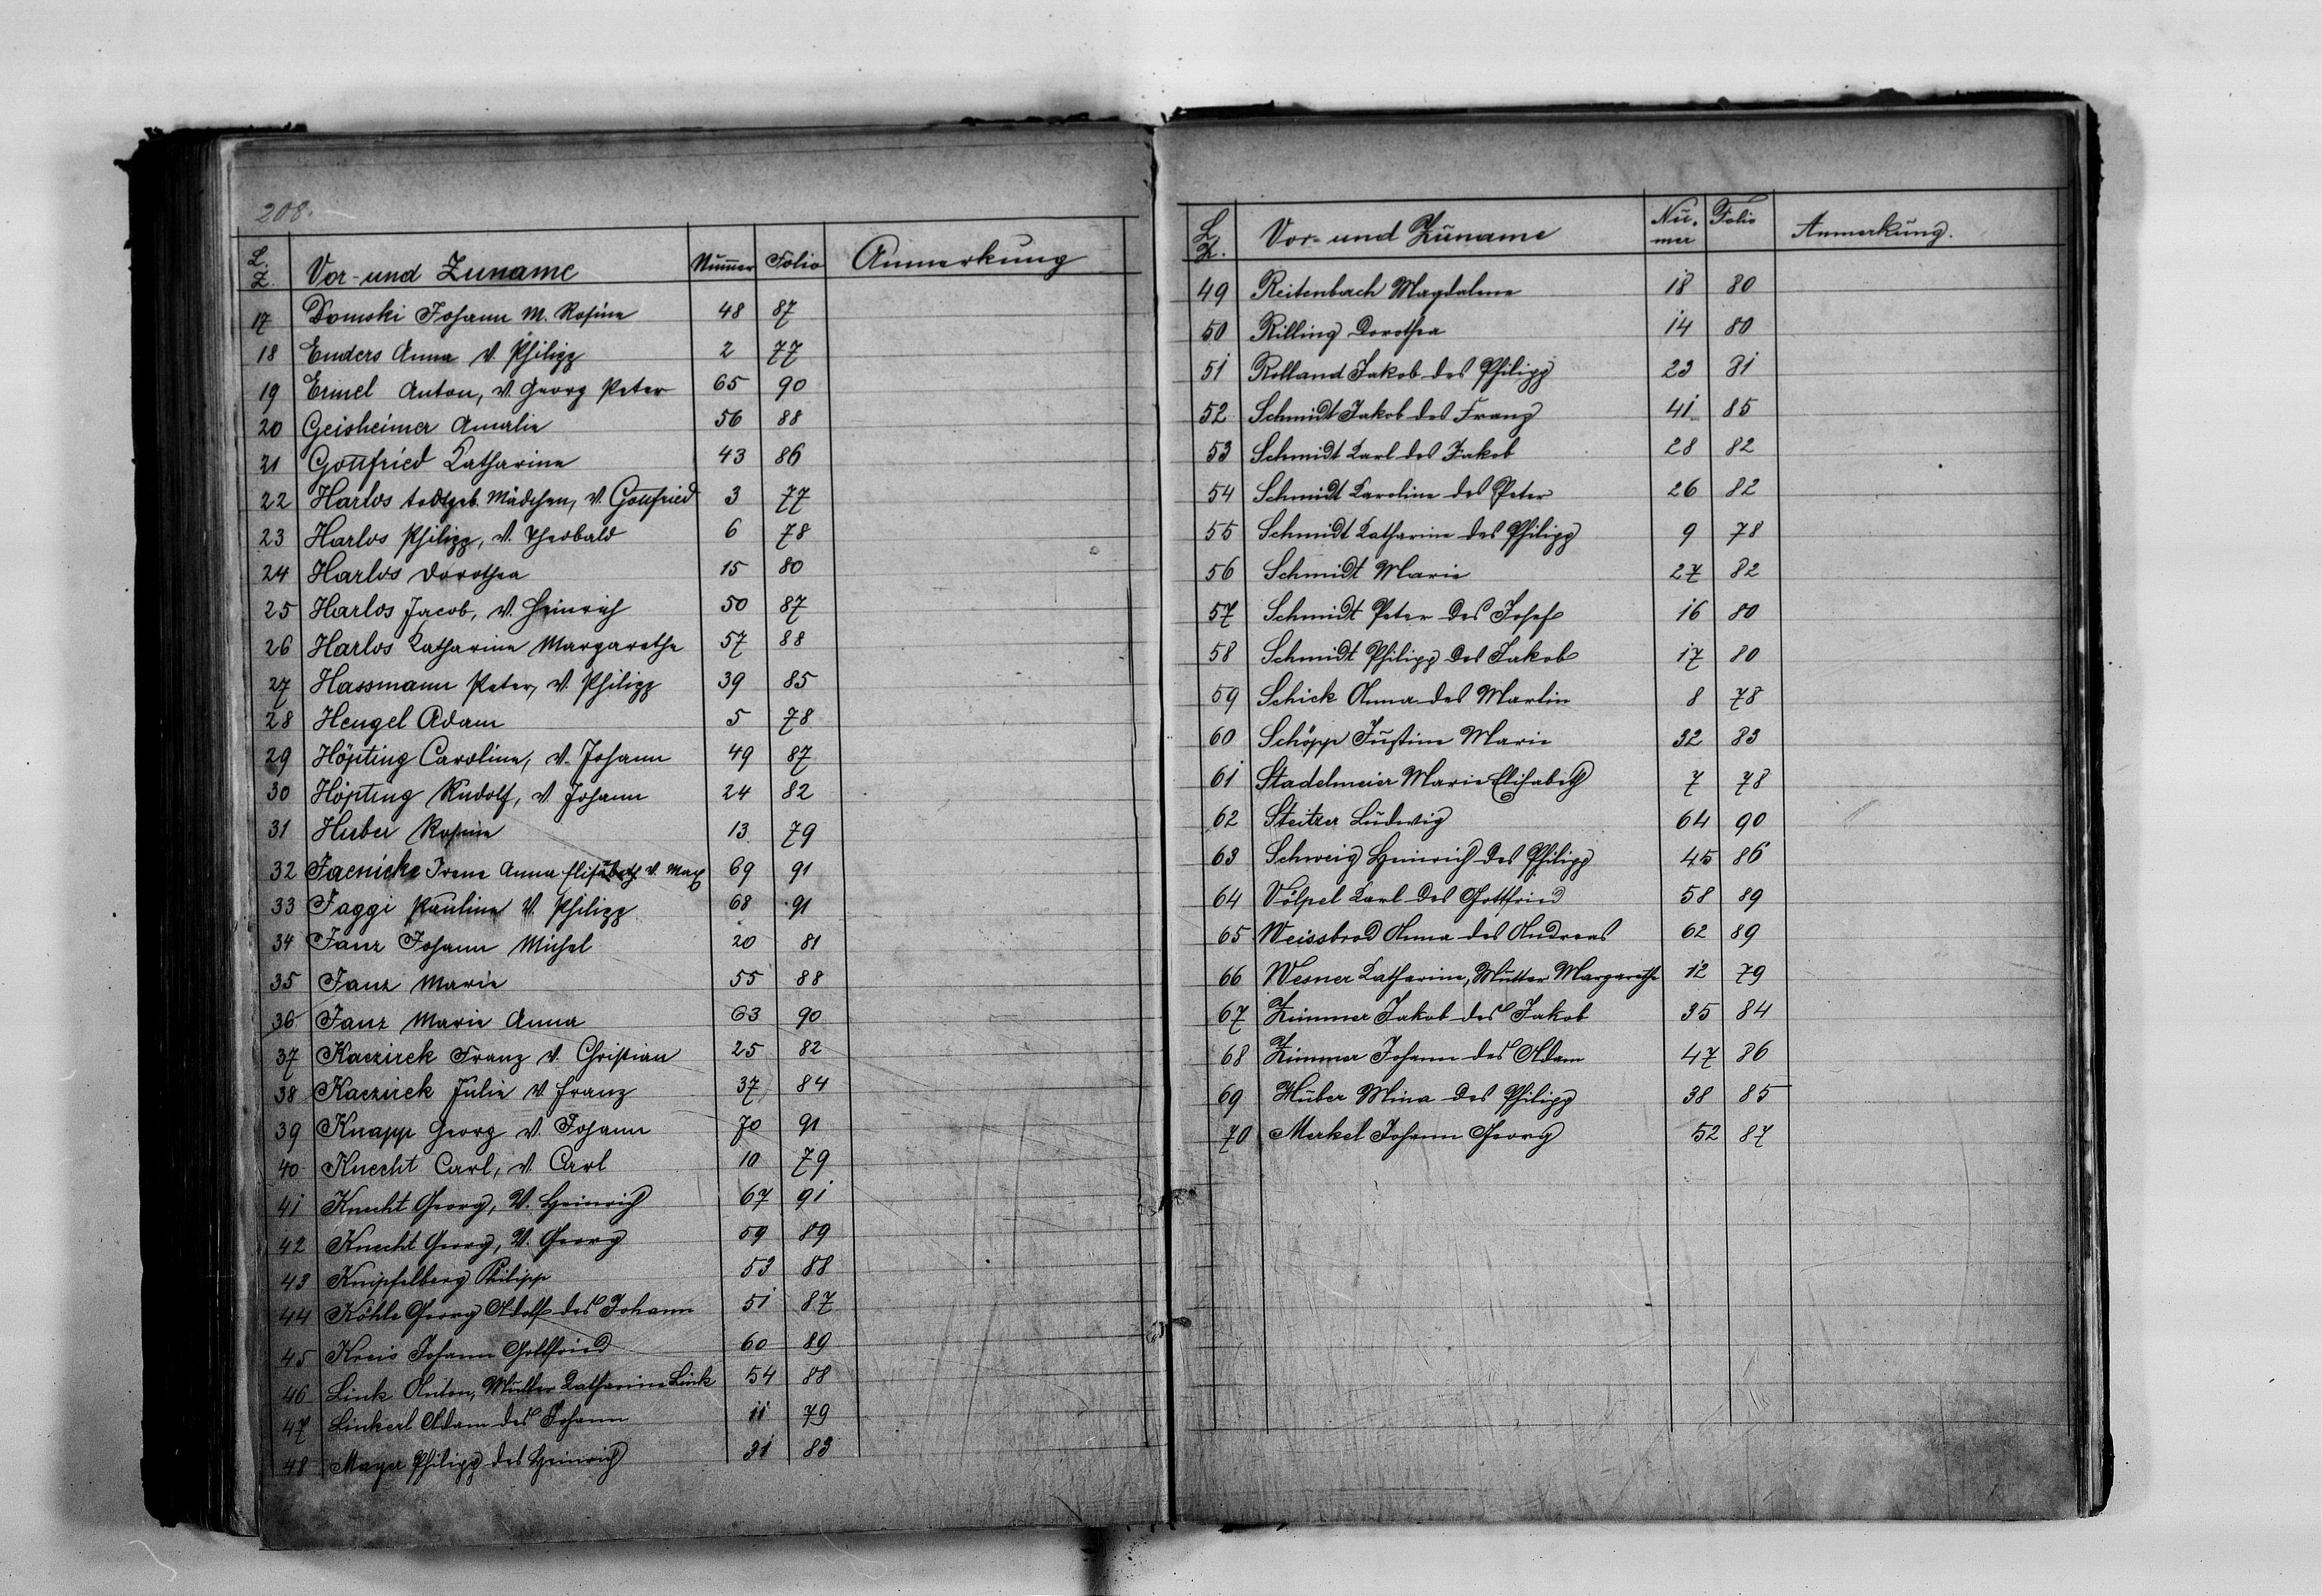 208.
L. Z. Vor- und Zuname Nummer Folio Anmerkung
17 Domski Johann M. Rosina 48 87
18 Enders Anna V. Philipp 2 77
19 Ermel Anton, V. Georg Peter 65 90
20 Geisheimer Amalie 56 88
21 Gottfried Katharina 43 86
22 Harlos todtgeb. Mädchen, V. Gottfried 3 77
23 Harlos Philipp, V. Theobald 6 78
24 Harlos Dorothea 15 80
25 Harlos Jacob, V. Heinrich 50 87
26 Harlos Katharina Margaretha 57 88
27 Hassmann Peter, V. Philipp 39 85
28 Hengel Adam 5 78
29 Höpting Carolina, V. Johann 49 87
30 Höpting Rudolf, V. Johann 24 82
31 Huber Rosina 13 79
32 Jaenicke Irene Anna Elisabeth V. Max 69 91
33 Jaggi Pauline V. Philipp 68 91
34 Janz Johann Michel 20 81
35 Janz Marie 55 88
36 Janz Marie Anna 63 90
37 Kaczirek Franz V. Christian 25 82
38 Kaczirek Julie V. Franz 37 84
39 Knapp Georg V. Johann 70 91
40 Knecht Carl, V. Carl 10 79
41 Knecht Georg, V. Heinrich 67 91
42 Knecht Georg, V. Georg 59 89
43 Knipfelberg Philipp 53 88
44 Köhle Georg Adolf des Johann 51 87
45 Kreis Johann Gottfried 60 89
46 Link Anton, Mutter Katharina Link 54 88
47 Linkerl Adam des Johann 11 79
48 Mayer Philipp des Heinrich 31 83
L. Z. Vor- und Zuname Nu̅-mer Folio Anmerkung.
49 Reitenbach Magdalena 18 80
50 Rilling Dorothea 14 80
51 Rolland Jakob des Philipp 23 81
52 Schmidt Jakob des Franz 41 85
53 Schmidt Karl des Jakob 28 82
54 Schmidt Karoline des Peter 26 82
55 Schmidt Katharina des Philipp 9 78
56 Schmidt Marie 27 82
57 Schmidt Peter des Josef 16 80
58 Schmidt Philipp des Jakob 17 80
59 Schick Anna des Martin 8 78
60 Schöpp Justine Marie 32 83
61 Stadelmeier Marie Elisabeth 7 78
62 Steitzer Ludwig 64 90
63 Schweig Heinrich des Philipp 45 86
64 Völpel Karl des Gottfried 58 89
65 Weissbrod Anna des Andreas 62 89
66 Wesner Katharina, Mutter Margarethe 12 79
67 Zimmer Jakob des Jakob 35 84
68 Zimmer Johann des Adam 47 86
69 Huber Mina des Philipp 38 85
70 Merkel Johann Georg 52 87